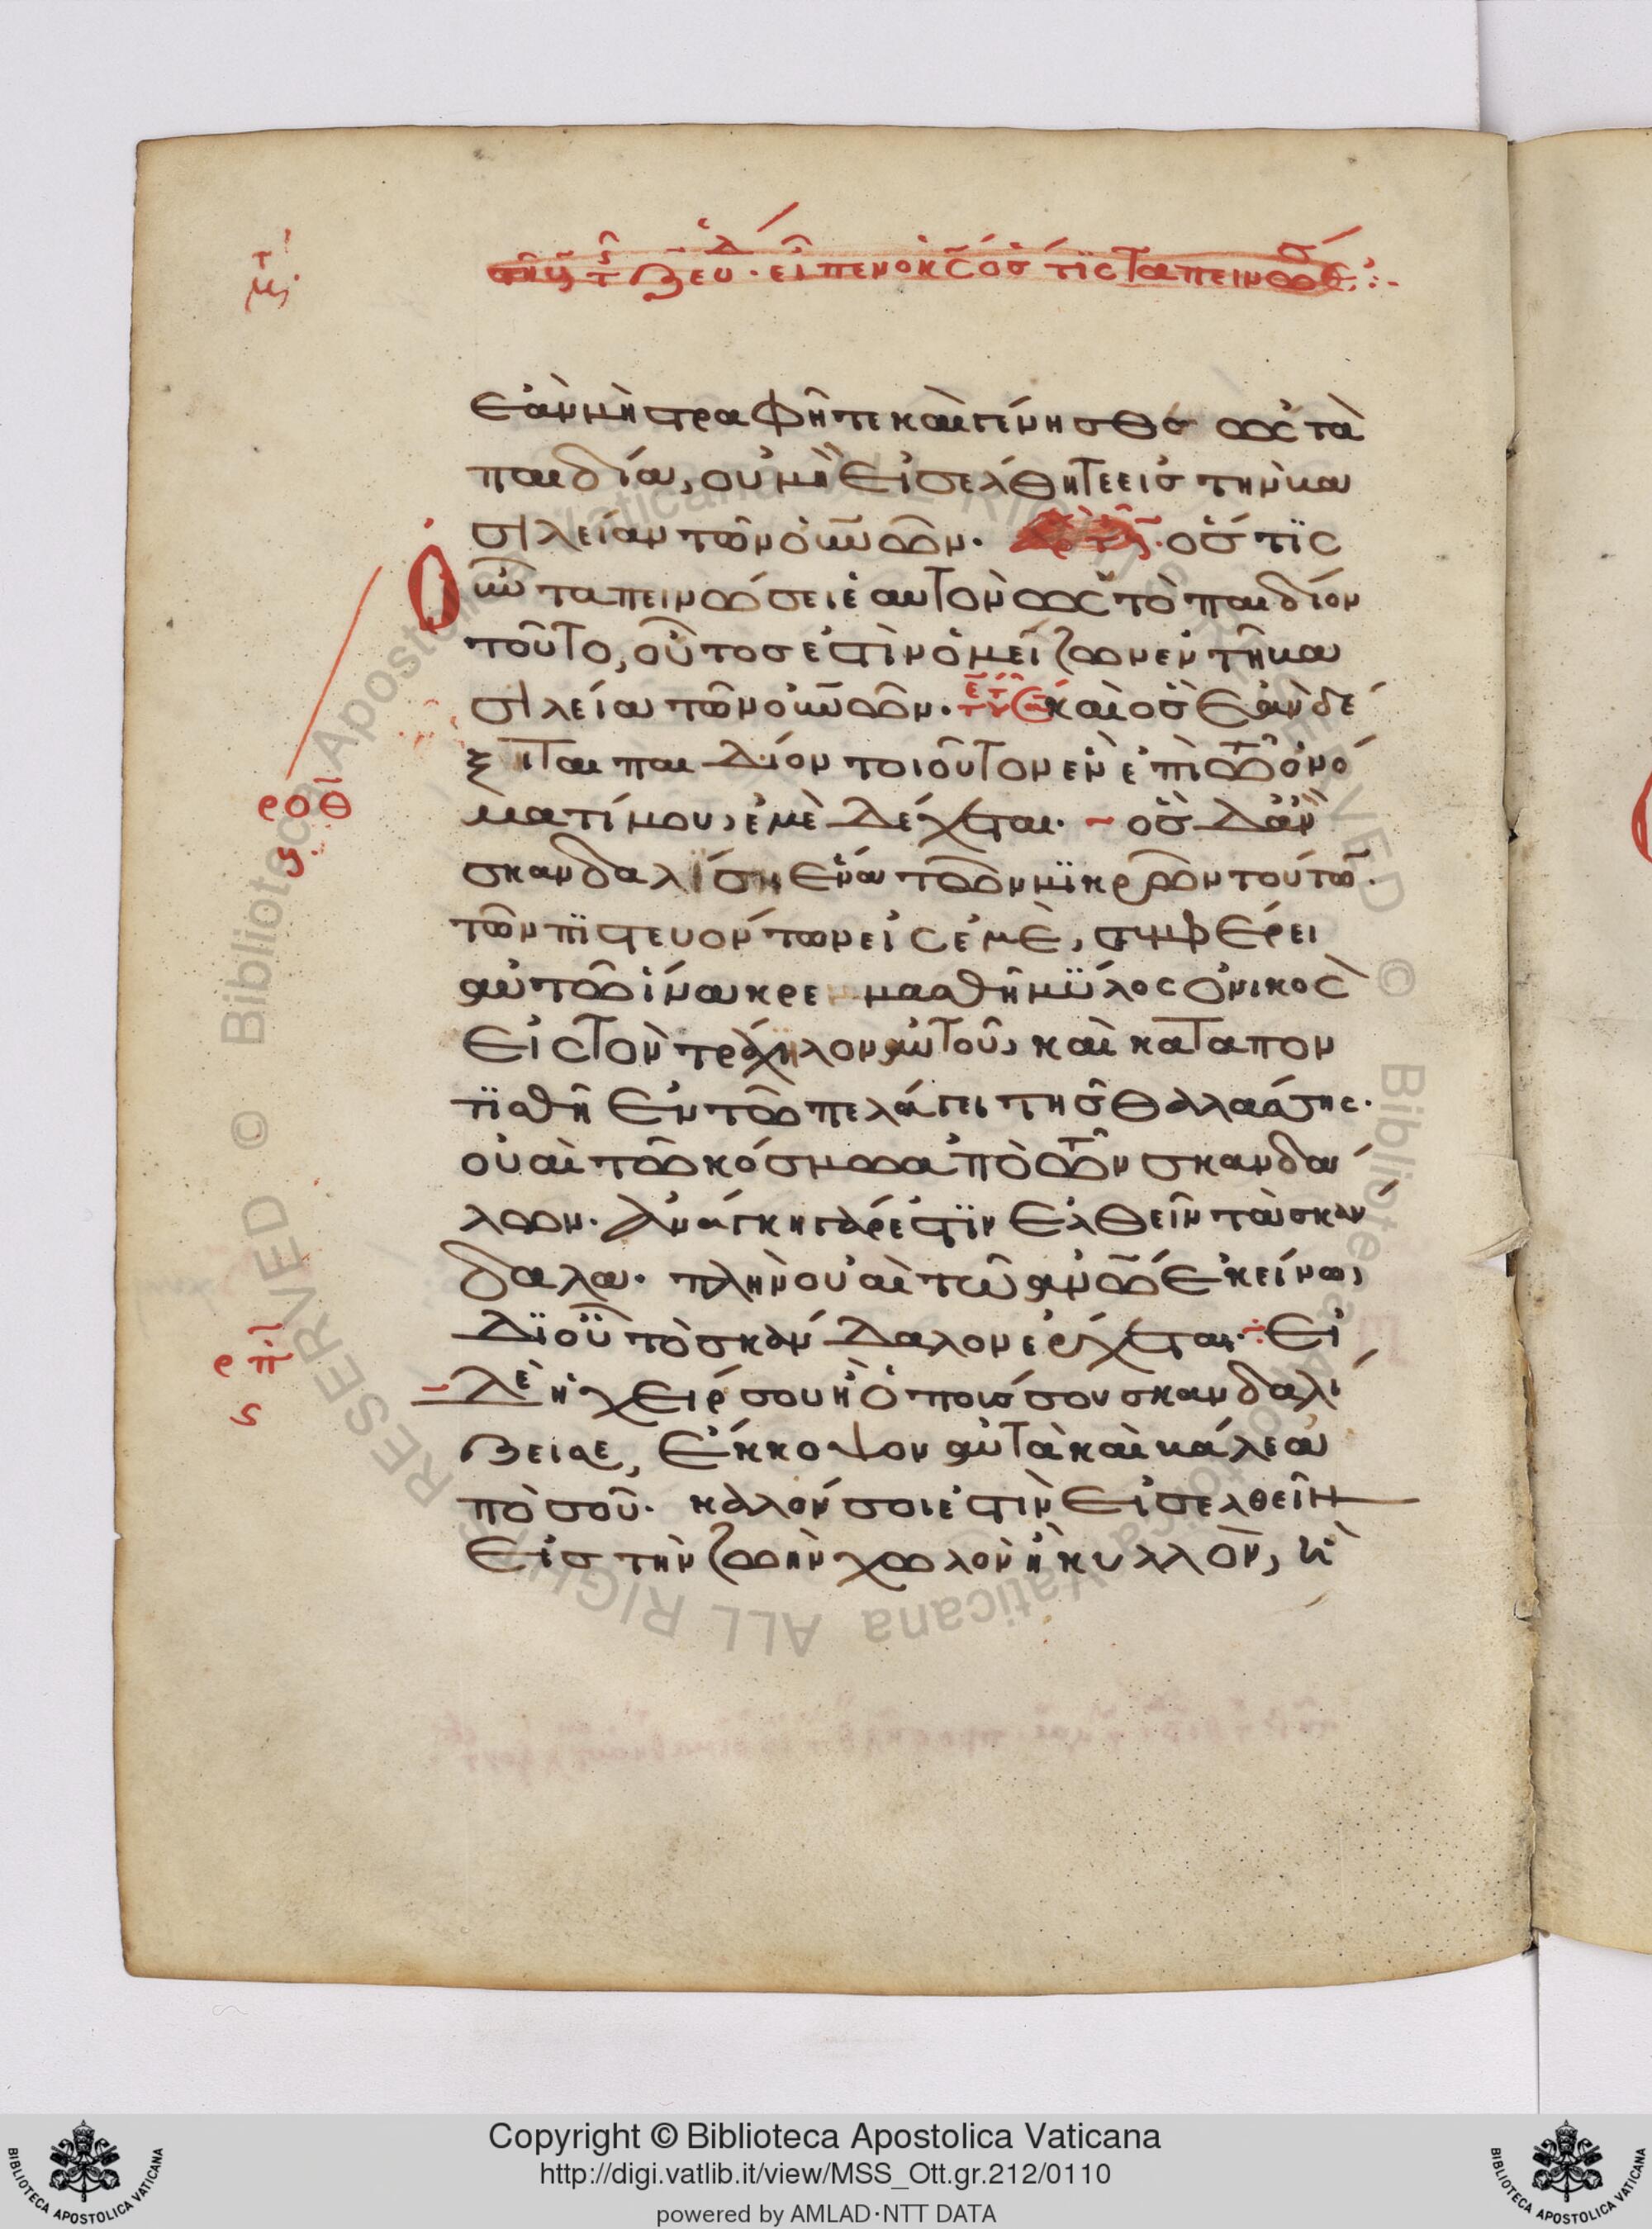 εἶπεν ὁ κς̅ ὅστις ταπεινώσει
ἐὰν μὴ στραφῆτε καὶ γένησθε ὡς τὰ
παιδία, οὐ μὴ εἰσέλθητε εἰς τὴν βα
σιλείαν τῶν οὐνῶν. ὅστις
οὖν ταπεινώσει ἑαυτὸν ὡς τὸ παιδίον
τοῦτο, οὗτός ἐστιν ὁ μείζων ἐν τῆ βα
σιλεία τῶν οὐνῶν. καὶ ὃς ἐὰν δέ
ξηται παιδίον τοιοῦτον ἓν ἐπὶ τῶ ὀνό
ματί μου, ἐμὲ δέχεται. ὃς δ' ἂν
σκανδαλίση ἕνα τῶν μικρῶν τούτω̅
τῶν πιστευόντων εἰς ἐμὲ, συμφέρει
αὐτῶ ἵνα κρεμασθῆ μύλος ὀνικὸς
εἰς τὸν τράχηλον αὐτοῦ, καὶ καταπον
τισθῆ ἐν τῶ πελάγει τῆς θαλάσσης.
οὐαὶ τῶ κόσμω ἀπὸ τῶν σκανδά
λων. ἀνάγκη γάρ ἐστιν ἐλθεῖν τὰ σκάν
δαλα. πλὴν οὐαὶ τῶ ἀνῶ ἐκείνω,
δι' οὗ τὸ σκάνδαλον ἔρχεται. εἰ
δὲ ἡ χείρ σου ἢ ὁ πούς σου σκανδαλί
ζει σε, ἔκκοψον αὐτὰ καὶ βάλε ἀ
πὸ σοῦ. καλόν σοι ἐστὶν εἰσελθεῖν
εἰς τὴν ζωὴν χωλὸν ἢ κυλλὸν, ἢ
ροθ
ρπ
ς
Copyright © Biblioteca Apostolica Vaticana
http://digi.vatlib.it/view/MSS_Ott.gr.212/0110
powered by AMLAD·NTT DATA
BIBLIOTECA APOSTOLICA VATICANA
BIBLIOTECA APOSTOLICA VATICANA